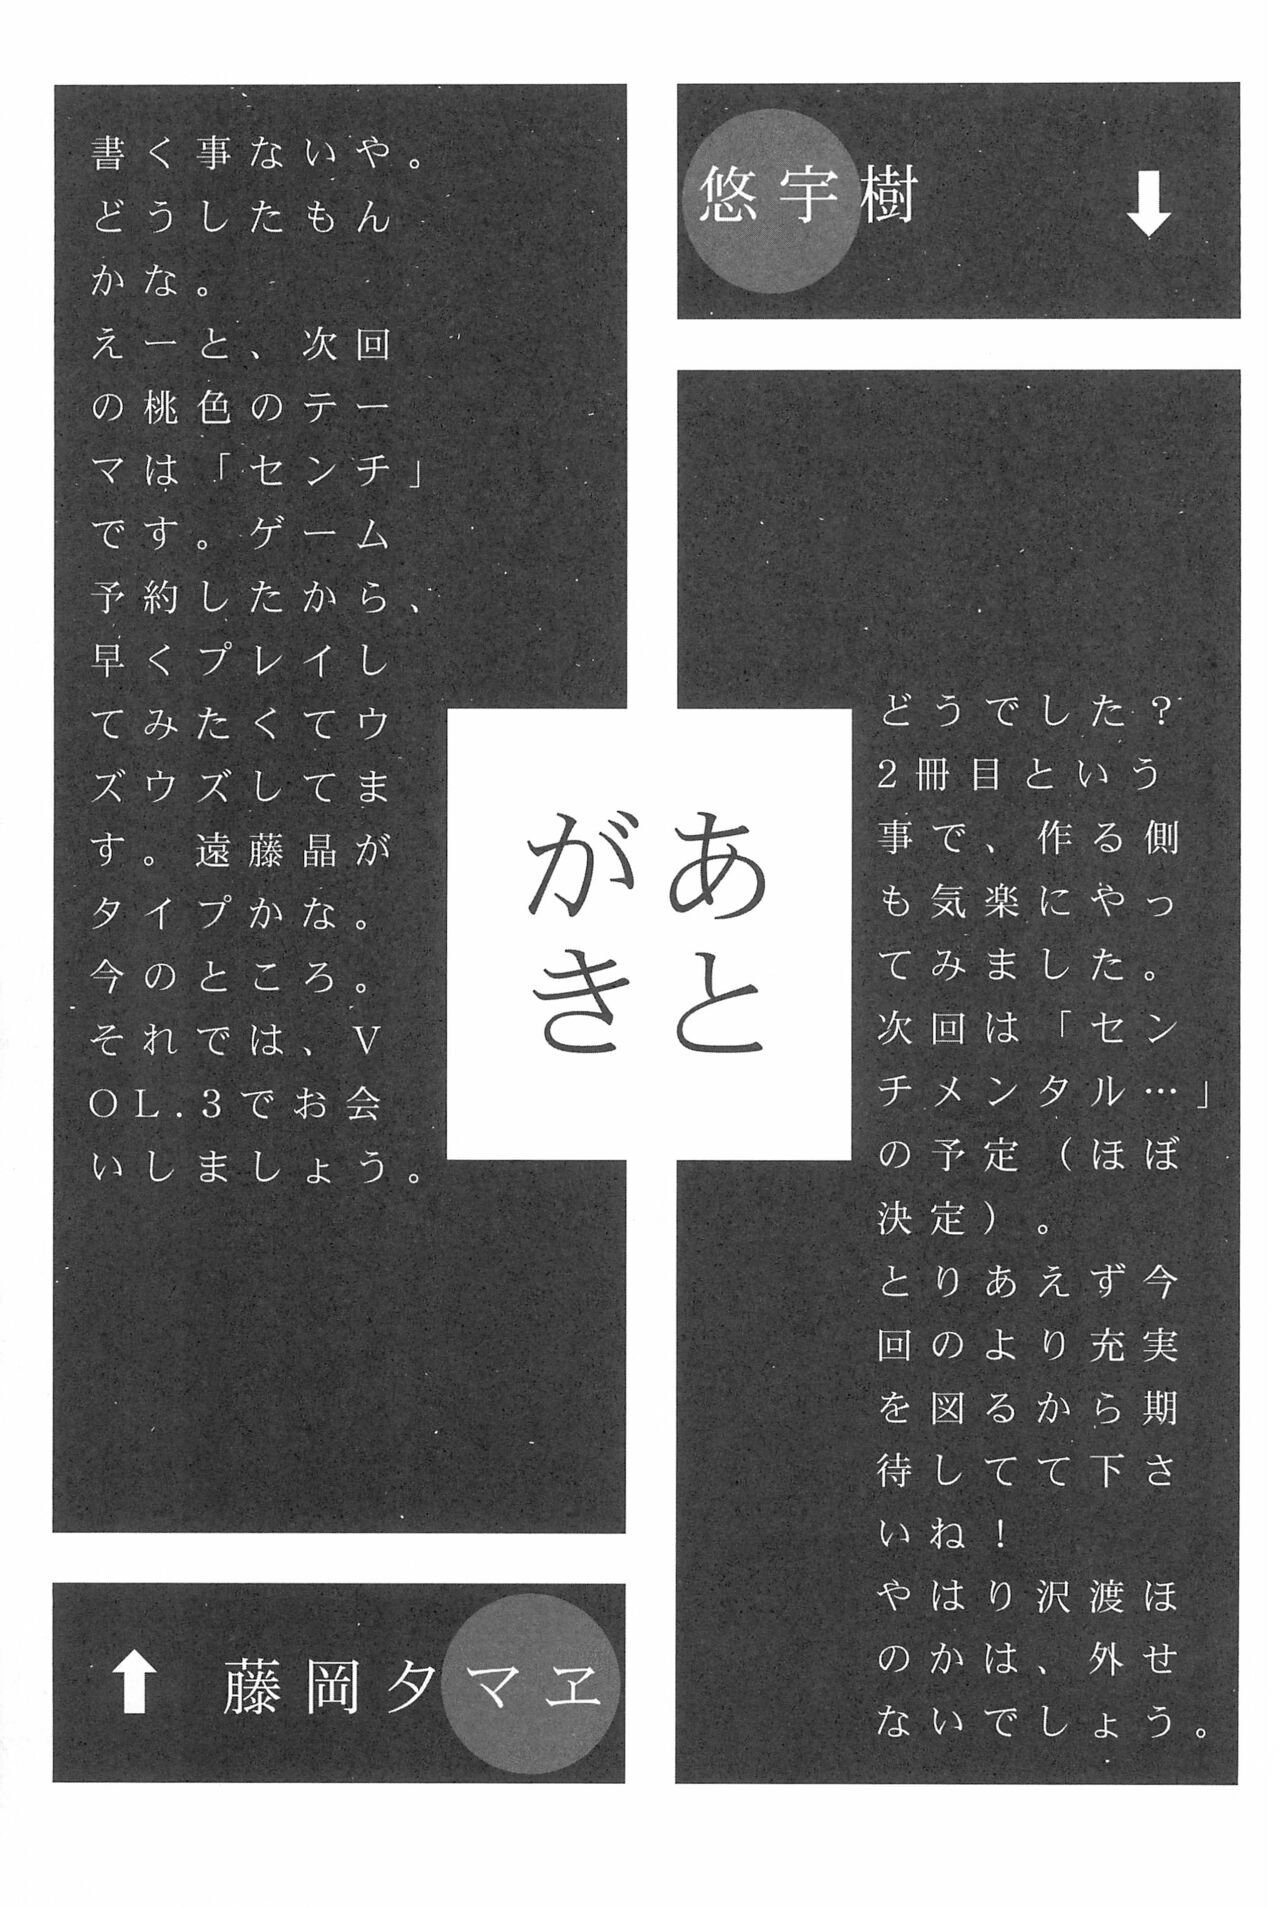 あと
がき
悠宇樹
どうでした？
2冊目という
事で、作る側
も気楽にやっ
てみました。
次回は「セン
チメンタル…」
の予定（ほぼ
決定）。
とりあえず今
回のより充実
を図るから期
待してて下さ
いね！
やはり沢渡ほ
のかは、外せ
ないでしょう。
書く事ないや。
どうしたもん
かな。
えーと、次回
の桃色のテー
マは「センチ」
です。ゲーム
予約したから、
早くプレイし
てみたくてウ
ズウズしてま
す。遠藤晶が
タイプかな。
今のところ。
それでは、V
OL.3でお会
いしましょう。
藤岡タマヱ